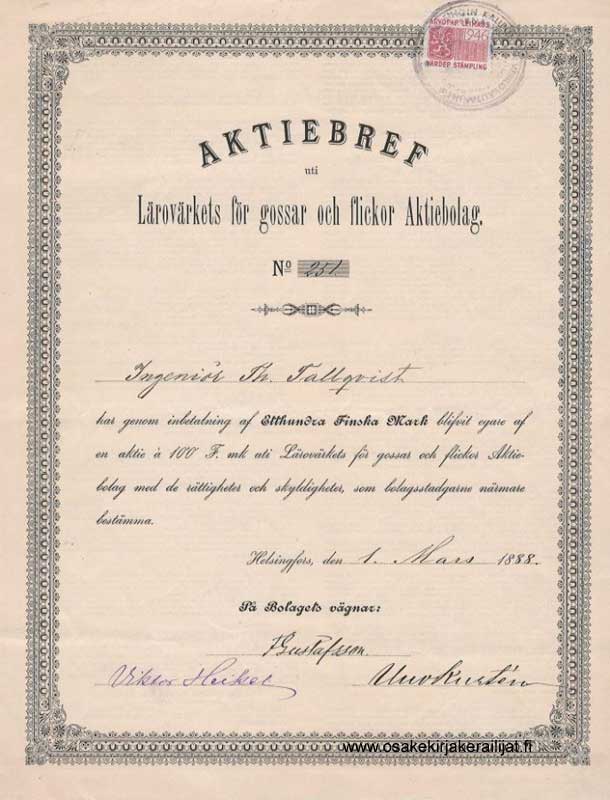 ARVOPAP. LEIMAUS
1946
VÄRDEP. STÄMPLING
AKTIEBREF
uti
Lärovärkets för gossar och flickor Aktiebolag.
No 251
Ingeniör Th. Tallqvist
har genom inbetalning af Etthundra Finska Mark blifvit egare af
en aktie à 100 F. mk uti Lärovärkets för gossar och flickor Aktie-
bolag med de rättigheter och skyldigheter, som bolagsstadgarne närmare
bestämma.
Helsingfors, den 1. Mars 1888.
På Bolagets vägnar:
Gustafsson.
Viktor Heikel Uno Kurtén
www.osakekirjakerailijat.fi